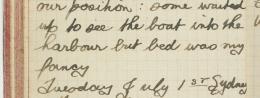 our position: some waited
up to see the boat into the
harbour but bed was my
fancy
Tuesday July 1st Sydney